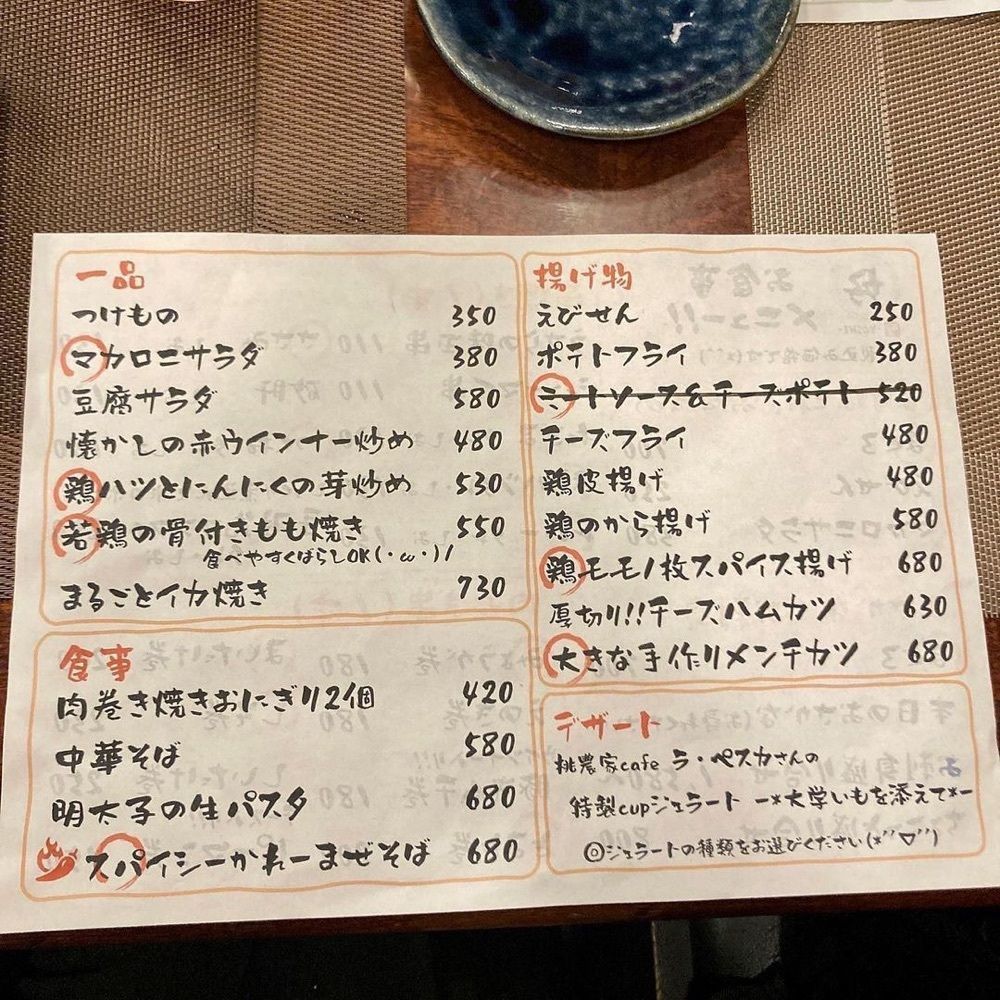 一品
つけもの 350
マカロニサラダ 380
豆腐サラダ 580
懐かしの赤ウインナー炒め 480
鶏ハツとにんにくの芽炒め 530
若鶏の骨付きもも焼き 550
食べやすくばらしOK(・ω・)ノ
まるごとイカ焼き 730
食事
肉巻き焼きおにぎり2個 420
中華そば 580
明太子の生パスタ 680
スパイシーかれーまぜそば 680
揚げ物
えびせん 250
ポテトフライ 380
ミートソース&チーズポテト 520
チーズフライ 480
鶏皮揚げ 480
鶏のから揚げ 580
鶏モモ1枚スパイス揚げ 680
厚切り!!チーズハムカツ 630
大きな手作りメンチカツ 680
デザート
桃農家cafe ラ・ペスカさんの
特製cupジェラート ー*大学いもを添えて*ー
◎ジェラートの種類をお選びください(*''▽'')